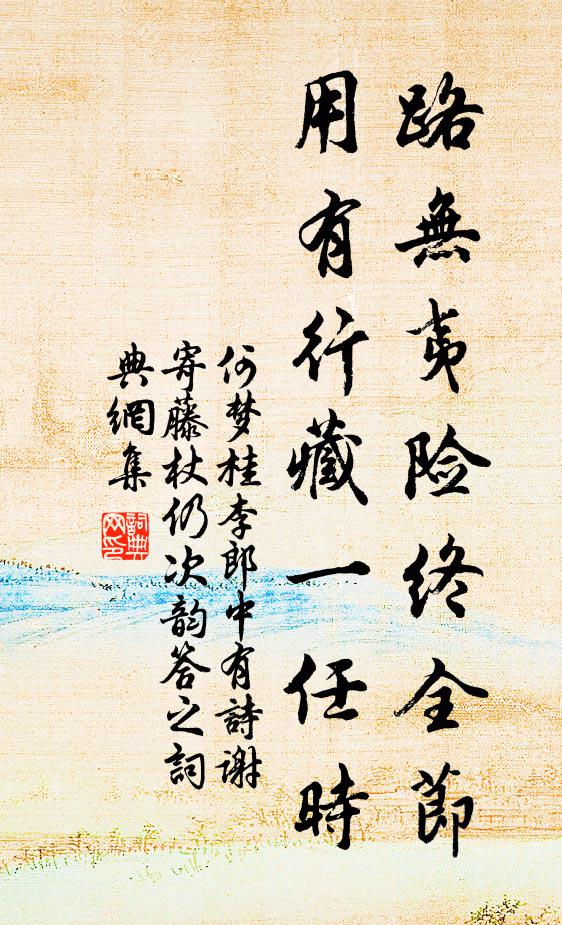 路無夷险终全節
用有行藏一任時
何梦桂李郎中有詩谢
寄藤杖仍次韵答之詞
典網集
詞典
网印